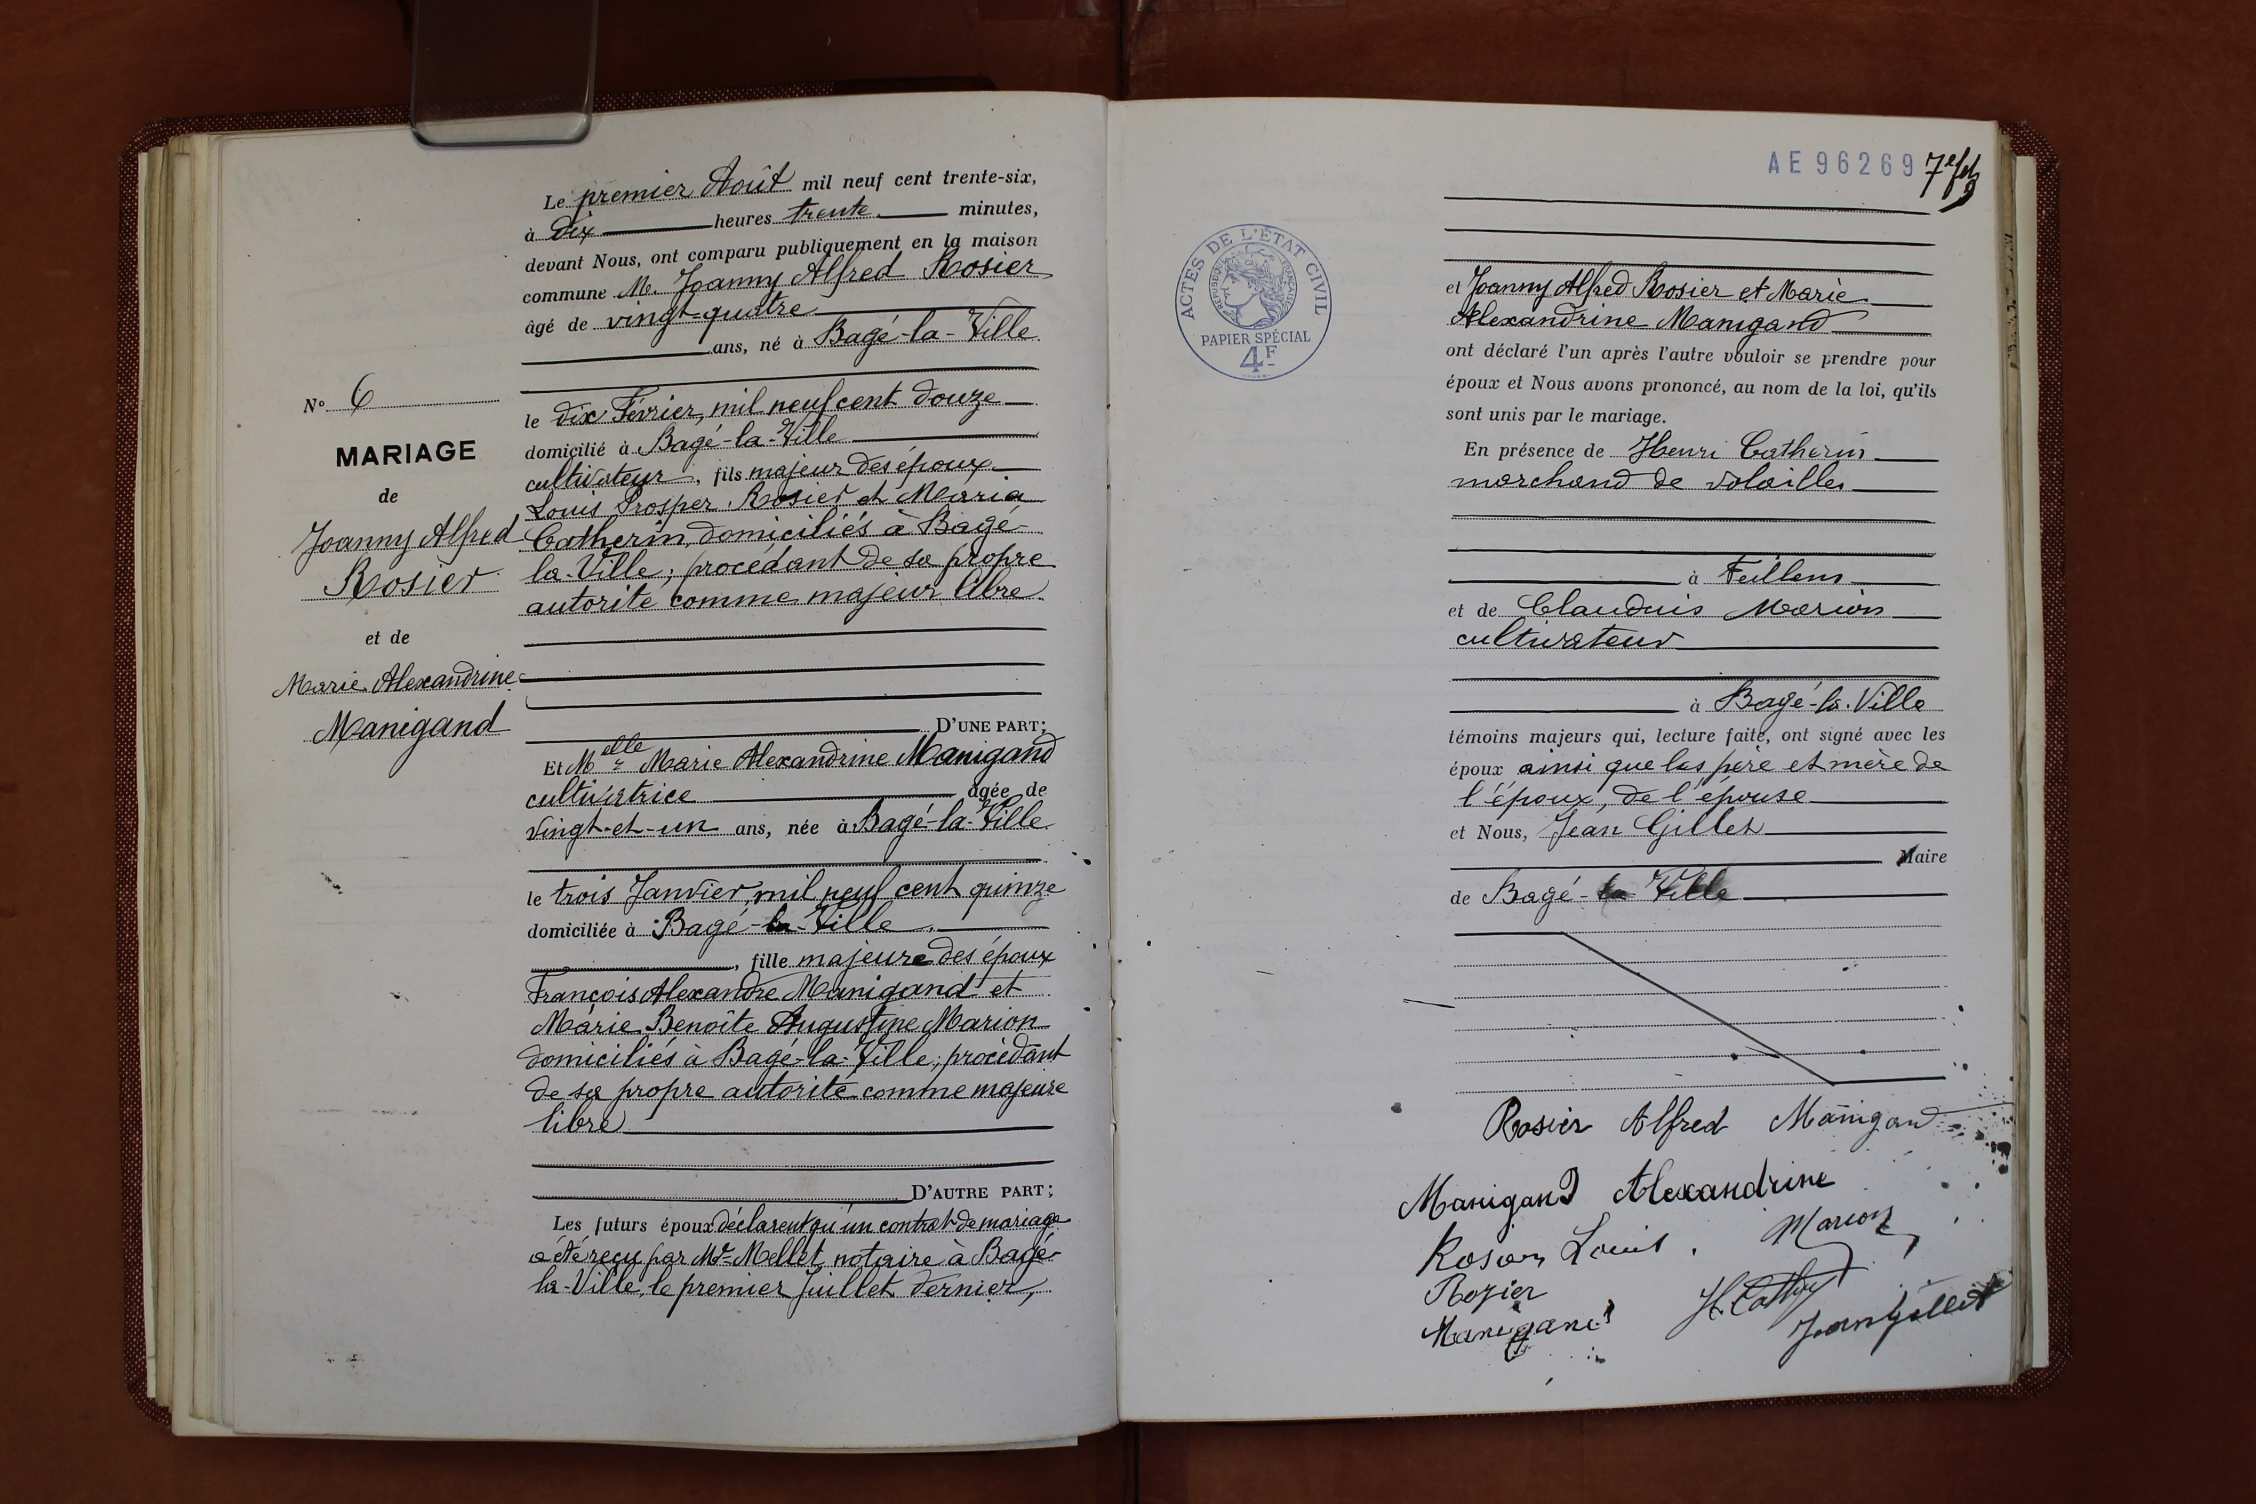 N° 6
MARIAGE
de
Joanny Alfred
Rosier
et de
Marie Alexandrine
Manigand
Le premier Août mil neuf cent trente-six,
à dix heures trente minutes,
devant Nous, ont comparu publiquement en la maison
commune M. Joanny Alfred Rosier
âgé de vingt-quatre
ans, né à Bagé-la-Ville
le dix Février, mil neuf cent douze
domicilié à Bagé-la-Ville
cultivateur, fils majeur des époux
Louis Prosper Rosier et Maria
Catherin, domiciliés à Bagé-
la-Ville; procédant de sa propre
autorité comme majeur libre
D'UNE PART;
Et Melle Marie Alexandrine Manigand
cultivatrice âgée de
vingt-et-un ans, née à Bagé-la-Ville
le trois Janvier, mil neuf cent quinze
domiciliée à Bagé-la-Ville
, fille majeure des époux
François Alexandre Manigand et
Marie Benoîte Augustine Marion
domiciliés à Bagé-la-Ville; procédant
de sa propre autorité comme majeure
libre
D'AUTRE PART;
Les futurs époux déclarent qu'un contrat de mariage
a été reçu par Me Mellet notaire à Bagé-
la-Ville, le premier Juillet dernier,
AE 96269
ACTES DE L'ÉTAT CIVIL
RÉPUBLIQUE FRANÇAISE
PAPIER SPÉCIAL
4F
et Joanny Alfred Rosier et Marie
Alexandrine Manigand
ont déclaré l'un après l'autre vouloir se prendre pour
époux et Nous avons prononcé, au nom de la loi, qu'ils
sont unis par le mariage.
En présence de Henri Catherin
marchand de volailles
à Feillens
et de Claudius Marion
cultivateur
à Bagé-la-Ville
témoins majeurs qui, lecture faite, ont signé avec les
époux ainsi que les père et mère de
l'époux, de l'épouse
et Nous, Jean Gillet
Maire
de Bagé-la-Ville
Rosier Alfred Manigand
Manigand Alexandrine
Rosier Louis Marion
Rozier
Manigand
Jean Gillet